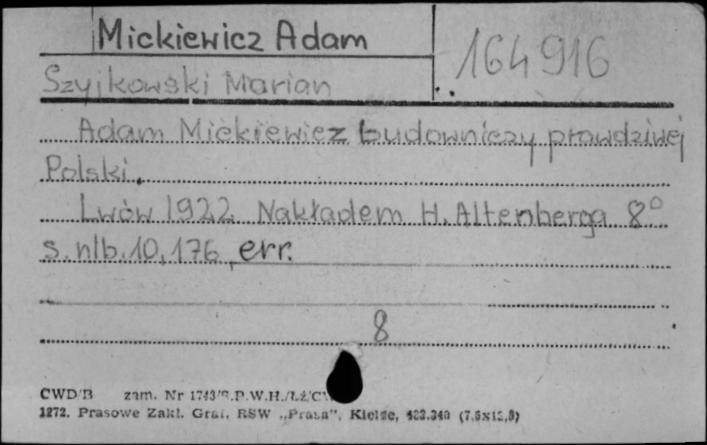 Mickiewicz Adam
164916
Szyjkowski Marian
Adam Mickiewicz budowniczy prawdziwej
Polski.
Lwów 1922 Nakładem H. Altenberga 8°
s. nlb. 10, 176, err.
8
CWD/B zam. Nr 1743/S.P.W.H.
1272. Prasowe Zakł. Graf. RSW „Prasa", Kielce, (7,5x12,5)